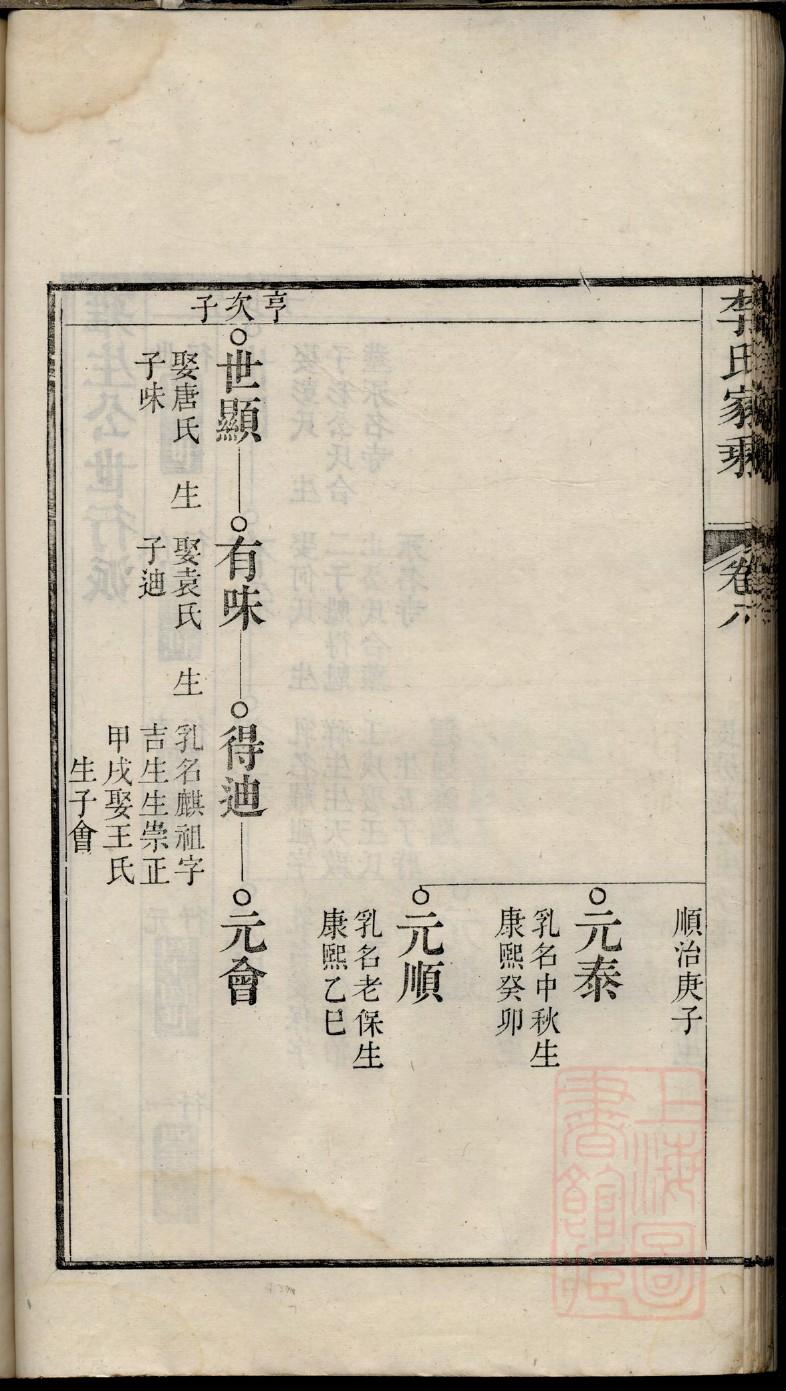 李氏家乘
卷六
順治庚子
元泰
乳名中秋生
康熙癸卯
元順
乳名老保生
康熙乙巳
亨次子
世顯
娶唐氏 生
子味
有味
娶袁氏 生
子迪
得迪
乳名麒祖字
吉生生崇正
甲戌娶王氏
生子會
元會
上海圖
書館藏